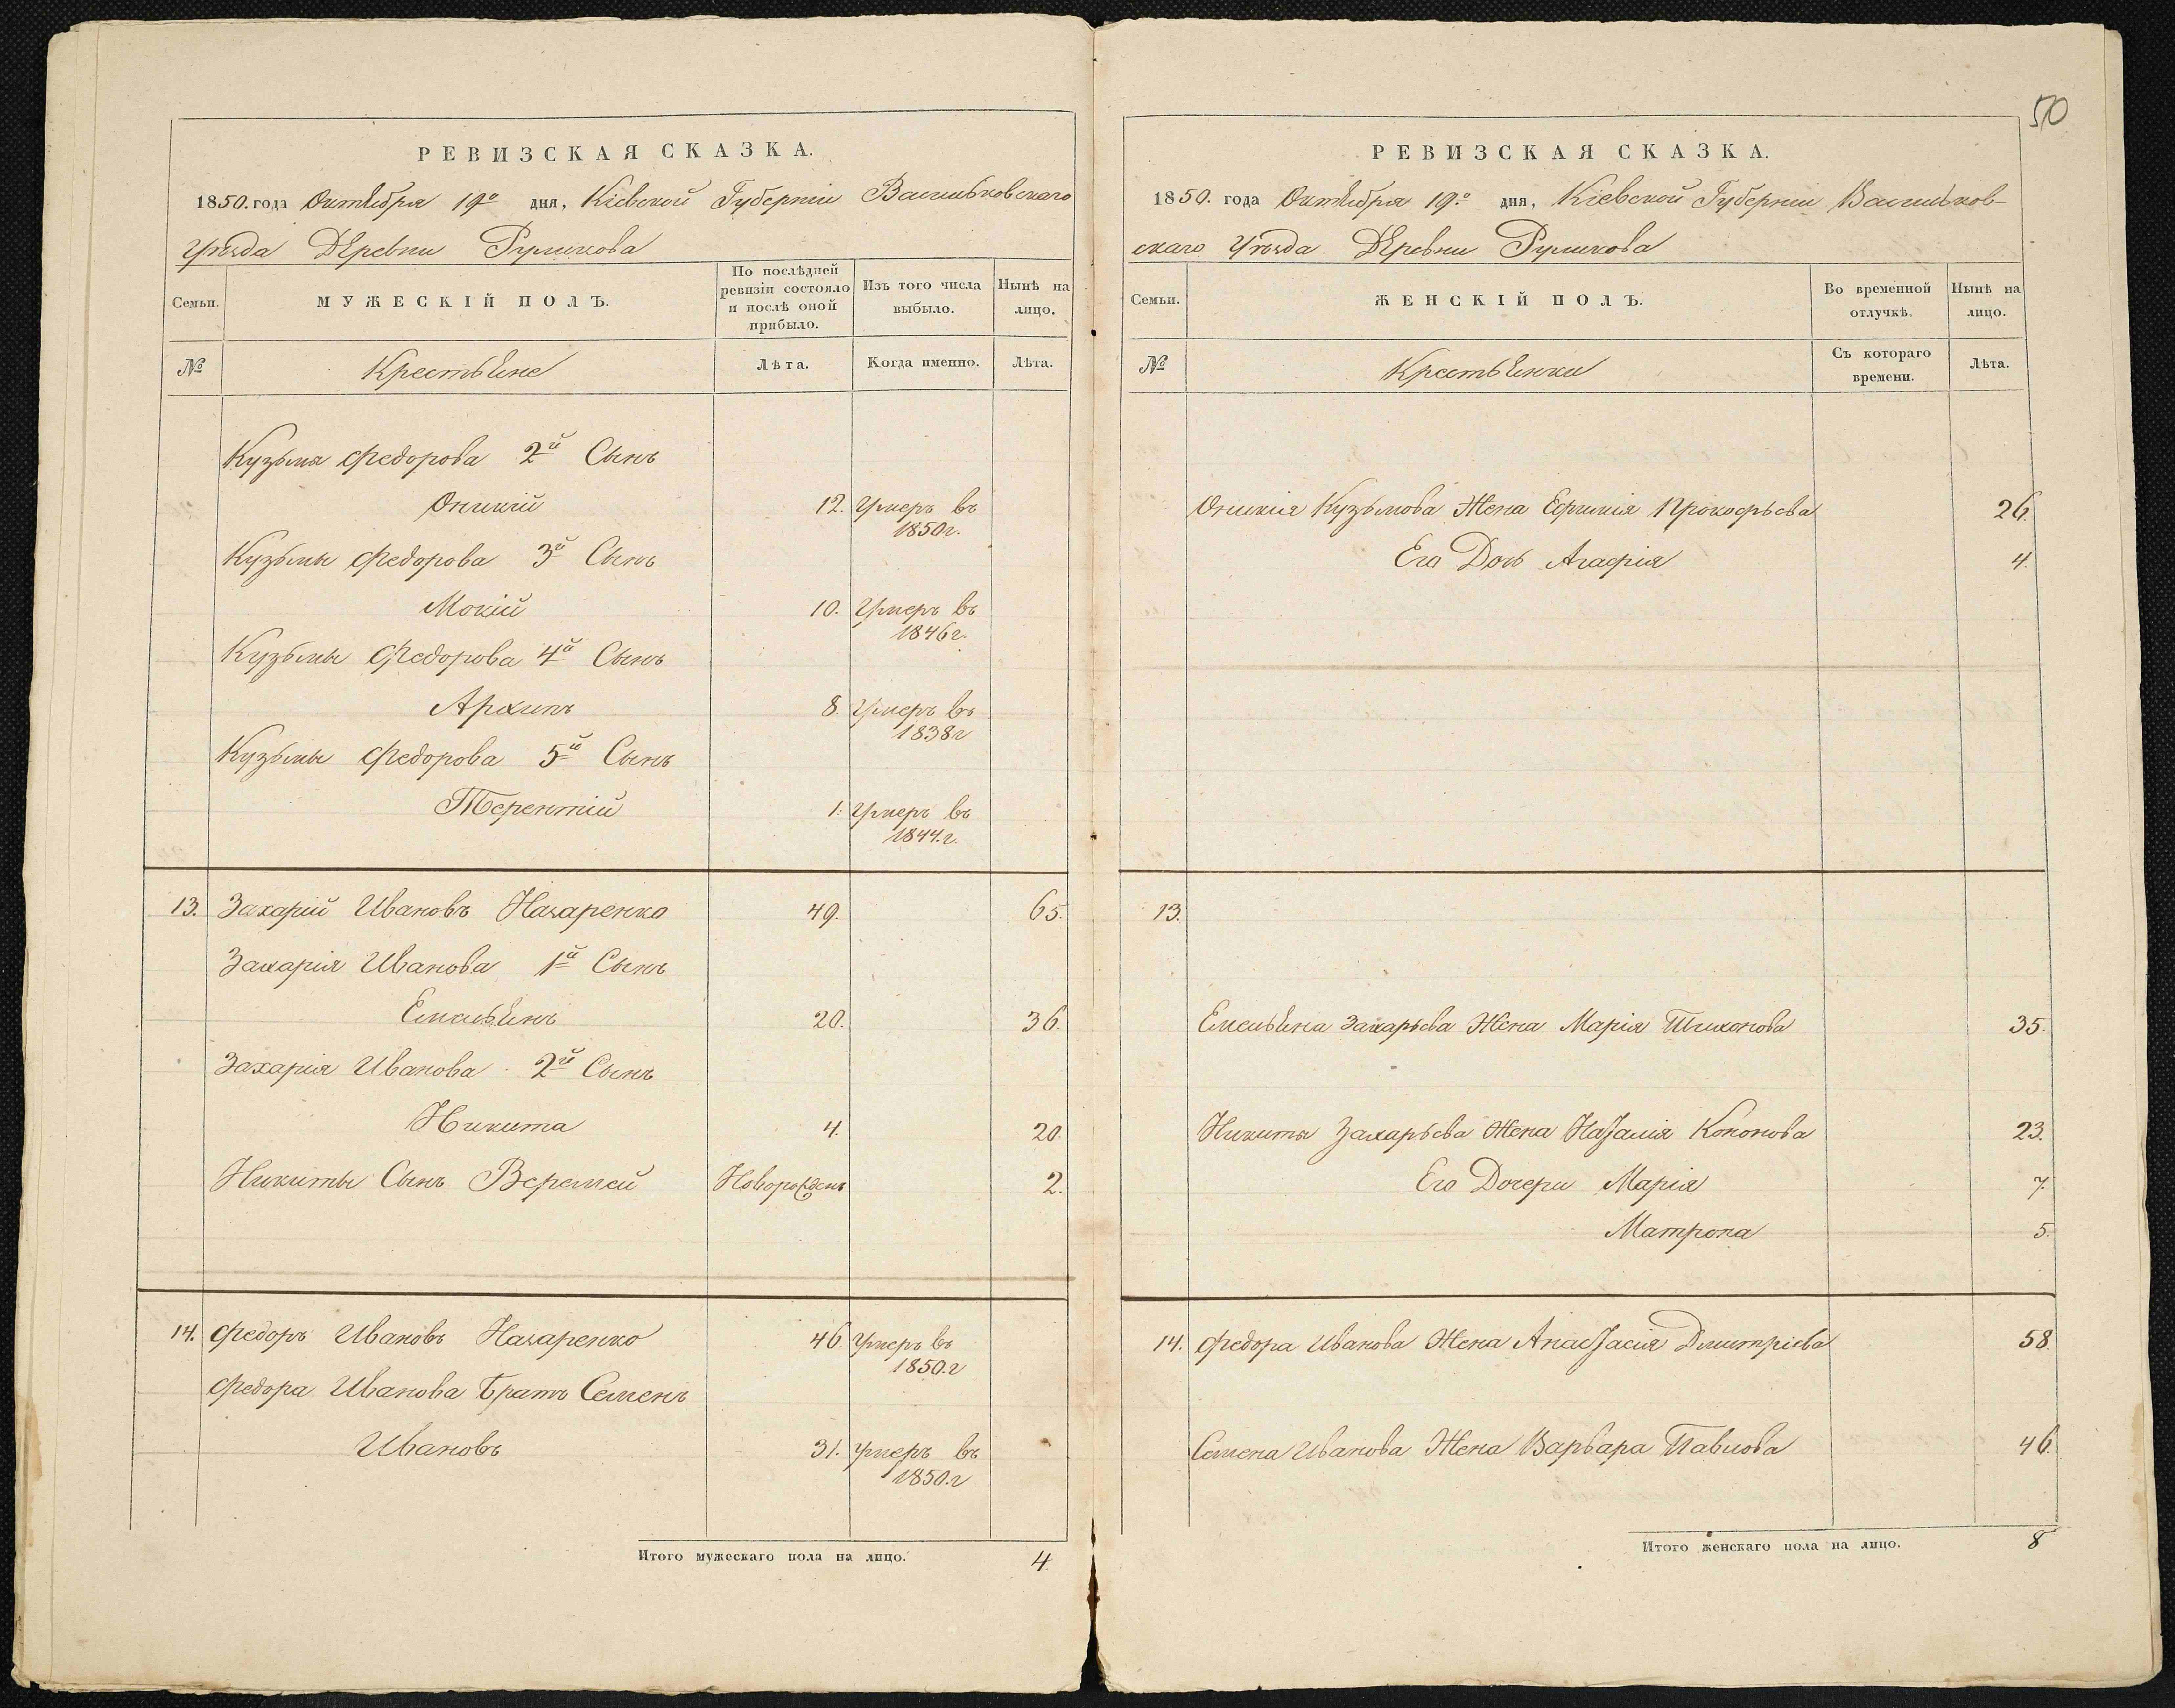 РЕВИЗСКАЯ СКАЗКА.
1850. года Октября 19го дня, Кіевской Губерніи Васильковскаго
Уѣзда Деревни Руликова
Семьи.
МУЖЕСКІЙ ПОЛЪ.
По послѣдней ревизіи состояло и послѣ оной прибыло.
Изъ того числа выбыло.
Нынѣ на лицо.
№
Крестьяне
Лѣта.
Когда именно.
Лѣта.
Кузьма Федорова 2й Сынъ
Оникій 12. Умеръ въ
1850г.
Кузьмы Федорова 3й Сынъ
Мокій 10. Умеръ въ
1846г.
Кузьмы Федорова 4й Сынъ
Архипъ 8. Умеръ въ
1838г
Кузьмы Федорова 5й Сынъ
Терентій 1. Умеръ въ
1844.г.
13. Захарій Ивановъ Назаренко 49. 65.
Захарія Иванова 1й Сынъ
Емельянъ 20. 36.
Захарія Иванова 2й Сынъ
Никита 4. 20.
Никиты Сынъ Веремей Новорожденъ 2.
14. Федоръ Ивановъ Назаренко 46. Умеръ въ
1850.г
Федора Иванова братъ Семенъ
Ивановъ 31. Умеръ въ
1850.г
Итого мужескаго пола на лицо. 4.
50
РЕВИЗСКАЯ СКАЗКА.
1850. года Октября 19.о дня, Кіевской Губерніи Васильков-
скаго Уѣзда Деревни Руликова
Семьи.
ЖЕНСКІЙ ПОЛЪ.
Во временной отлучкѣ.
Нынѣ на лицо.
№
Крестьянки
Съ котораго времени.
Лѣта.
Оникия Кузьмова Жена Ефимія Прокофьева 26.
Его Дочь Агафія 4.
13.
Емельяна Захарьева Жена Марія Тихонова 35.
Никиты Захарьева Жена Наталія Кононова 23.
Его Дочери Марія 7.
Матрона 5.
14. Федора Иванова Жена Анастасія Дмитріева 58.
Семена Иванова Жена Варвара Павлова 46.
Итого женскаго пола на лицо. 8